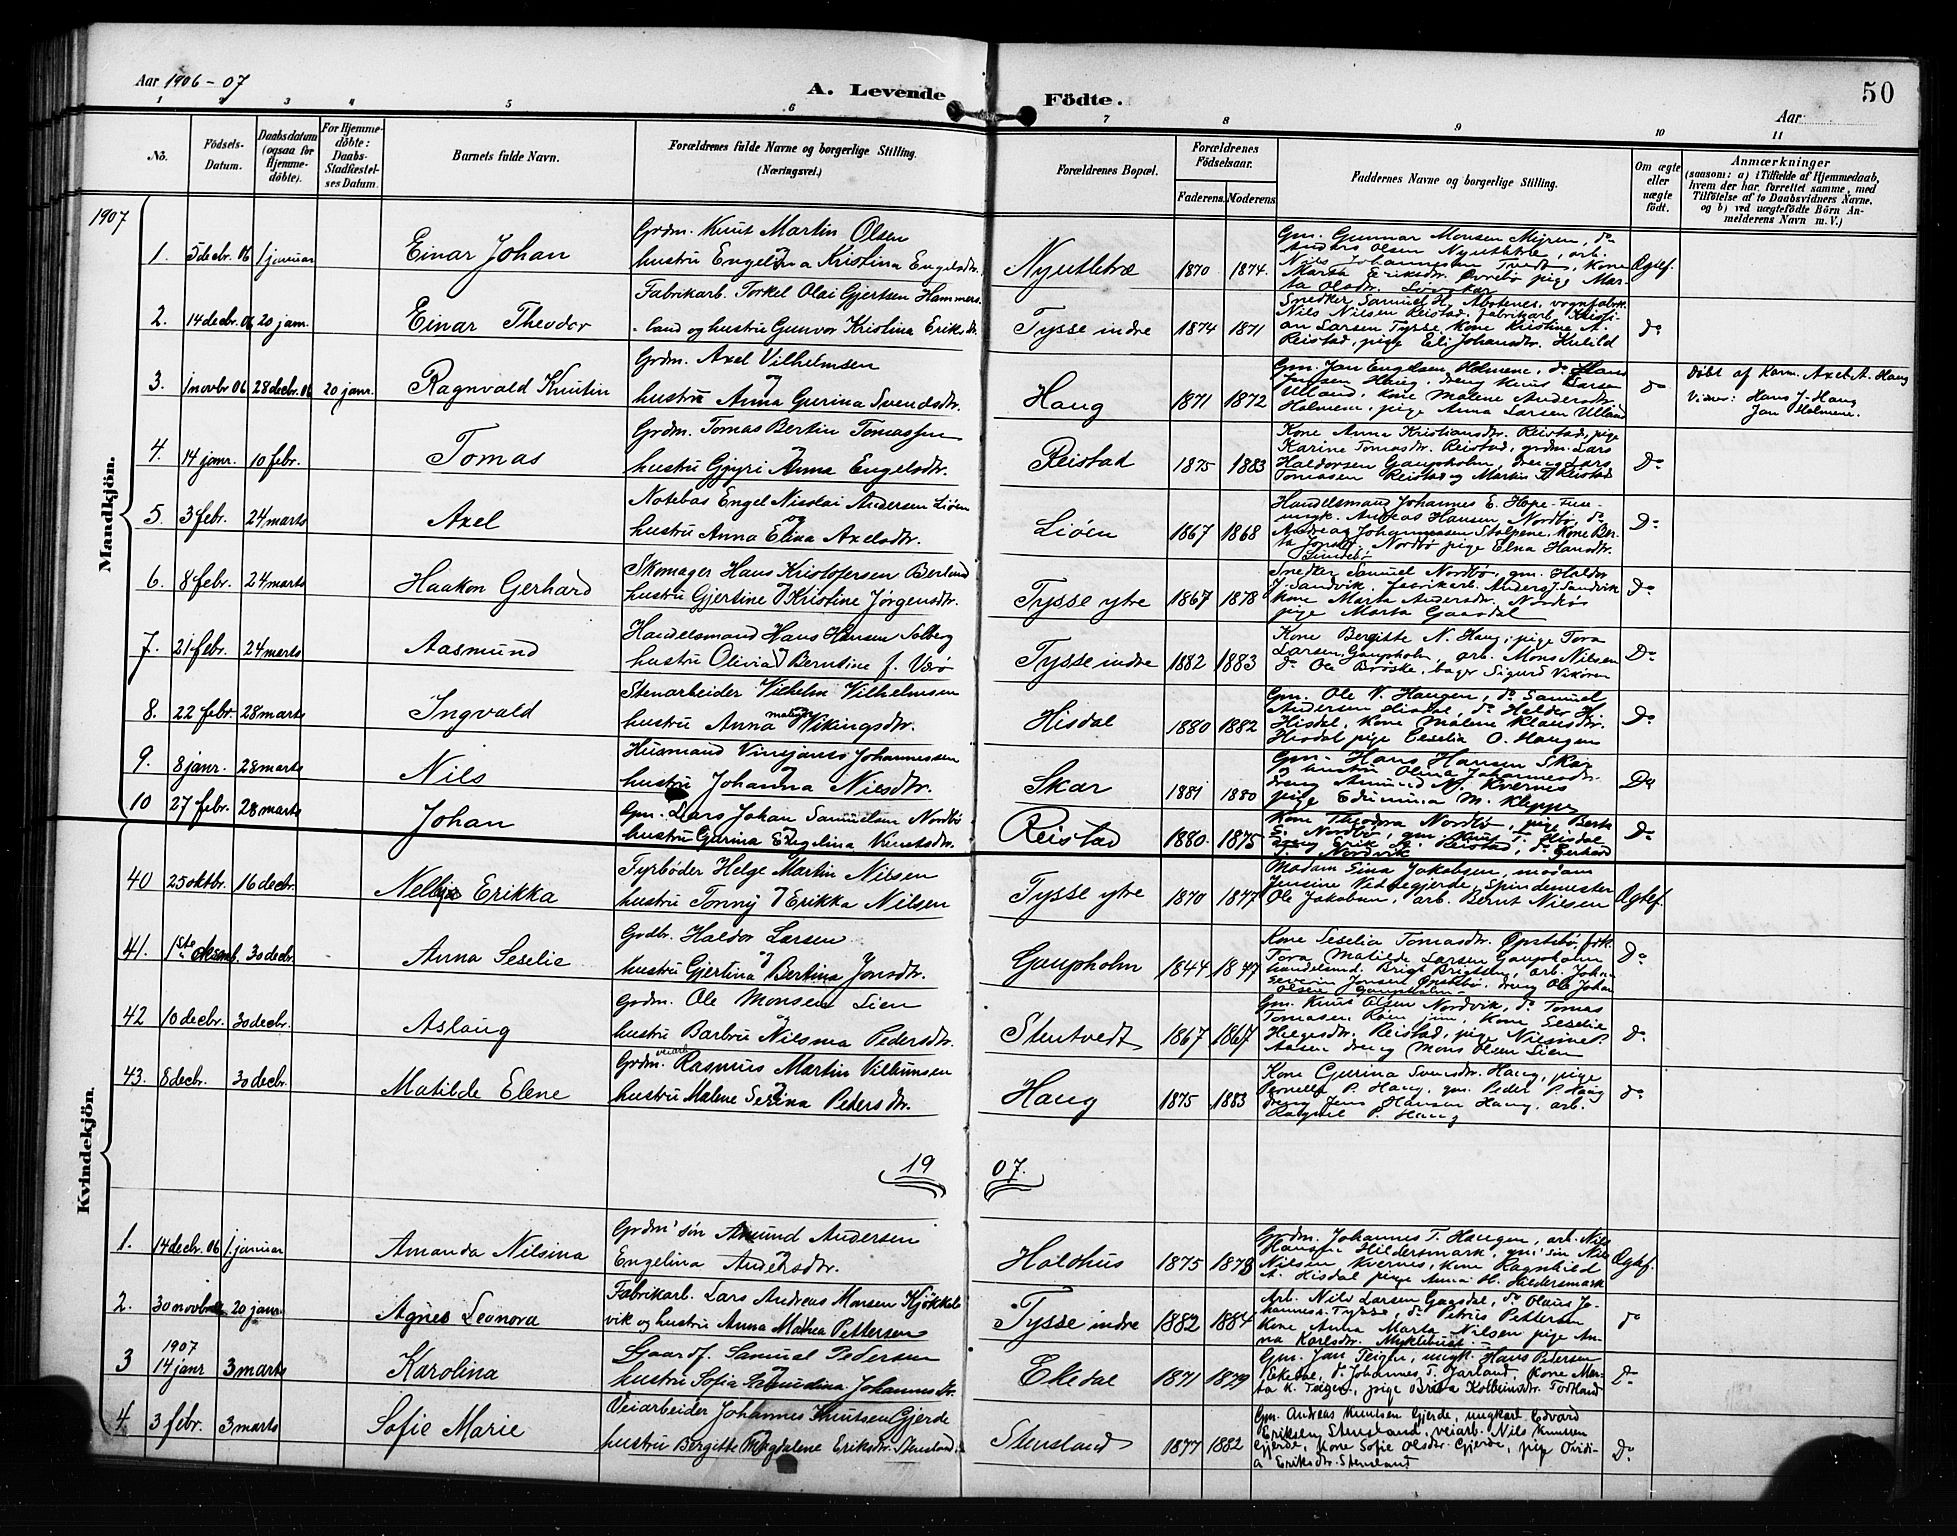 Aar 1906-07
A. Levende Födte.
Aar
50
1 2 3 4 5 6 7 8 9 10 11
No.
Födsels-Datum.
Daabsdatum (ogsaa for Hjemme-döbte).
For Hjemme-döbte: Daabs-Stadfæstel-ses Datum.
Barnets fulde Navn.
Forældrenes fulde Navne og borgerlige Stilling. (Næringsvei.)
Forældrenes Bopæl.
Forældrenes Födselsaar.
Faderens. Moderens
Faddernes Navne og borgerlige Stilling.
Om ægte eller uægte födt.
Anmærkninger
(saasom: a) i Tilfælde af Hjemmedaab, hvem der har forrettet samme, med Tilföielse af to Daabsvidners Navne, og b) ved uægtefödte Börn An-melderens Navn m. V.)
1907
Mandkjön.
1. 5 decbr. 06 1 januar Einar Johan
Grdm. Knut Martin Olsen
hustru Engelina Kristina Engelsdtr.
Nyutletræ 1870 1874.
Gm. Gunnar Monsen Mijren, do
Anders Olsen Nyutletræ, arb.
Ægtef.
2. 14 decbr. 06 20 jan. Einar Theodor
Fabrikarb. Torkel Olai Gjertsen Hammers-
land og hustru Gunvor Kristina Eriksdtr.
Tysse indre 1874 1871
Snedker Samuel H. Abotenes, vognfabrik.
Nils Nilsen Reistad, fabrikarb. Kristi-
an Larsen Tysse, kone Kristine A.
Reistad, pige Eli Johansdtr.
do
3. 1 novbr 06 28 decbr. 06 20 janr. Ragnvald Knutin
Grdm. Axel Vilhelmsen
hustru Anna Gurina Svendsdtr.
Haug 1871 1872
Gm. Jan Engelsen Holmene, do Hans
Jensen Haug, dreng Knut Larsen
Ulland, kone Malene Andersdtr.
Holmene, pige Anna Larsen Ulland
do
Döbt af Barm. Axel A. Haug
Vidner: Hans J. Haug
Jan Holmene.
4. 14 janr. 10 febr. Tomas
Grdm. Tomas Bertin Tomassen
hustru Gjyri Anna Engelsdtr.
Reistad 1875 1883
Kone Anna Kristiansdtr. Reistad, pige
Karine Tomasdtr. Reistad, grdm. Lars
Haldorsen Gaupholm, dreng Lars
Tomasen Reistad og Martin K. Reistad
Do
5. 3 febr. 24 marts Axel
Notebas Engel Nicolai Andersen Liöen
hustru Anna Elina Axelsdtr.
Liöen 1867 1868
Handelsmand Johannes E. Hope-
ungk. Andreas Hansen Nordbö, do
Andreas Johannessen Stolpene, kone Ber-
ta Nordbö pige Elna Hansdtr.
Do
6. 8 febr. 24 marts Haakon Gerhard
Skomager Hans Kristofersen Berland
hustru Gjertine Kristine Jörgensdtr.
Tysse ytre 1867 1878
Snedker Samuel Nordbö, gm. Haldor
J. Sandvik, fabrikarb. Anders J. Sandvik
kone Marta Andersdtr. Nordbö
pige Marta Gaasdal
Do
7. 21 febr. 24 marts Aasmund
Handelsmand Hans Hansen Solberg
hustru Olivia Berntine f. Værö
Tysse indre 1882 1883
Kone Bergitte N. Haug, pige Tora
Larsen Gaupholm, arb. Mons Nilsen
do Ole Bröske, bager Sigurd Vikören
Do
8. 22 febr. 28 marts Ingvald
Stenarbeider Vilhelm Vilhelmsen
hustru Anna Vikingsdtr.
Hisdal 1880 1882
Gm. Ole V. Haugen, do Samuel
Andersen Hisdal, do Haldor H.
Hisdal, kone Malene Klausdtr.
Hisdal pige Ceselia O. Haugen
Do
9. 8 janr. 28 marts Nils
Husmand Vinsjants Johannessen
hustru Johanna Nilsdtr.
Skar 1881 1880
Gm. Hans Hansen Skar
og hustru Olina Johannesdtr.
dreng Amund M. Kvernes
pige M. Kleppe
Do
10 27 febr. 28 marts Johan
Gm. Lars Johan Samuelsen Nordbö
hustru Gurina Engelina Knutsdtr.
Reistad 1880. 1875
Kone Theodora Nordbö, pige Berta
S. Nordbö, gm. Knut T. Hisdal
dreng Erik Reistad, do Gerhard
T. Nordvik
Do
Kvindekjön.
40 25 oktbr. 16 decbr. Nelly Erikka
Fyrböder Helge Martin Nilsen
hustru Tonny Erikka Nilsen
Tysse ytre 1870 1877
Madam Sina Jakobsen, madam
Jensine Vedtegjerde, Spindemester
Ole Jakobsen, arb. Bernt Nilsen
Ægtef.
41. 1ste 30 decbr. Anna Seselie
Grdbr. Haldor Larsen
hustru Gjertina Bertina Jonsdtr.
Gaupholm 1844 1847
Kone Seselia Tomasdtr. Öpstebö,
Tora Matilde Larsen Gaupholm
handelsmd. Brigt Brigtsen, arb. Johan
Severin Jonsen Öpstebö, dreng Ole Johan
Olsen Gaupholm
Do
42 10 decbr. 30 decbr. Aslaug
Grdm. Ole Monsen Lien
hustru Barbru Nilsina Pedersdtr.
Stentvedt 1867 1867
Gm. Knut Olsen Nordvik, do Tomas
Tomasen Röen jun, kone Seselie
Helgesdtr. Reistad, pige Nilsine P.
Aasen dreng Mons Olsen Lien
do
43. 8 decbr. 30 decbr. Matilde Elene
Grdm. Rasmus Martin Vilhelmsen
hustru Malene Serina Pedersdtr.
Haug 1875 1883
Kone Gurina Svensdtr. Haug, pige
Pernelle P. Haug, gm. Peder P. Haug
dreng Jens Hansen Haug, arb.
P. Haug
do
19 07.
1. 14 decbr. 06 1 januar Amanda Nilsina
Grdm' sön Amund Andersen
Engelina Andersdtr.
Holdhus 1875 1878
Grdm. Johannes T. Haugen, arb. Nils
Hansen Hildersmark, gm' sön Nils
Nilsen Kvernes, kone Ragnhild
A. Hisdal pige Anna H. Hildersmark
Ægtef.
2. 30 novbr 20 janr Agnes Leonora
Fabrikarb. Lars Andreas Monsen Kjökkel-
vik og hustru Anna Mathea Pettersen
Tysse indre 1882 1884
Arb. Nils Larsen Gaasdal, do Olaus Jo-
hannesn. Tysse, do Petrus Pettersen
kone Anna Marta Nilsen pige An-
na Karlsdtr. Myklebust
do
1907
3 14 janr 3 marts Karolina
Gaardf. Samuel Pedersen
hustru Sofia Johannesdtr.
Ekedal 1871 1879
Gm. Jan Teigen, ungk. Hans Pedersen
Ekedal, do Johannes T. Jarland, kone Mar-
ta K. Teigen, pige Brita Kolbeinsdtr. Todland
Do
4 3 febr. 3 marts Sofie Marie
Veiarbeider Johannes Knutsen Gjerde
hustru Bergitte Magdalene Eriksdtr. Stensland.
Stensland 1877 1882
Gm. Andreas Knutsen Gjerde, ungkarl Edvard
Eriksen Stensland, veiarb. Nils Knutsen
Gjerde, kone Sofie Olsdtr. Gjerde, pige Ovidi-
a Eriksdtr. Stensland
Do